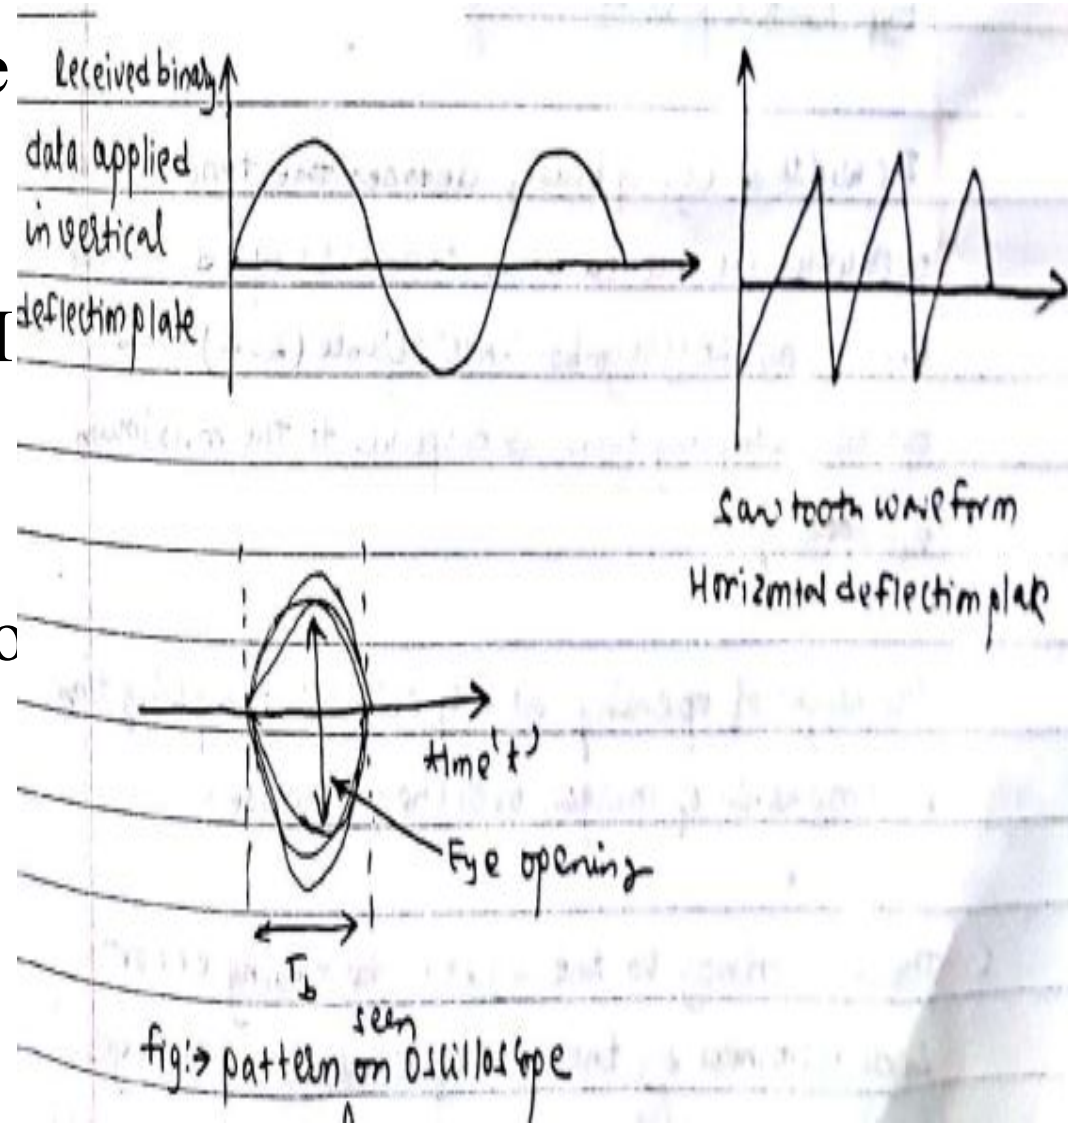 e
Received binary
data applied
in vertical
I
deflection plate
sawtooth waveform
Horizontal deflection plate
time 't'
Eye opening
Tb
seen
fig:→ pattern on oscilloscope